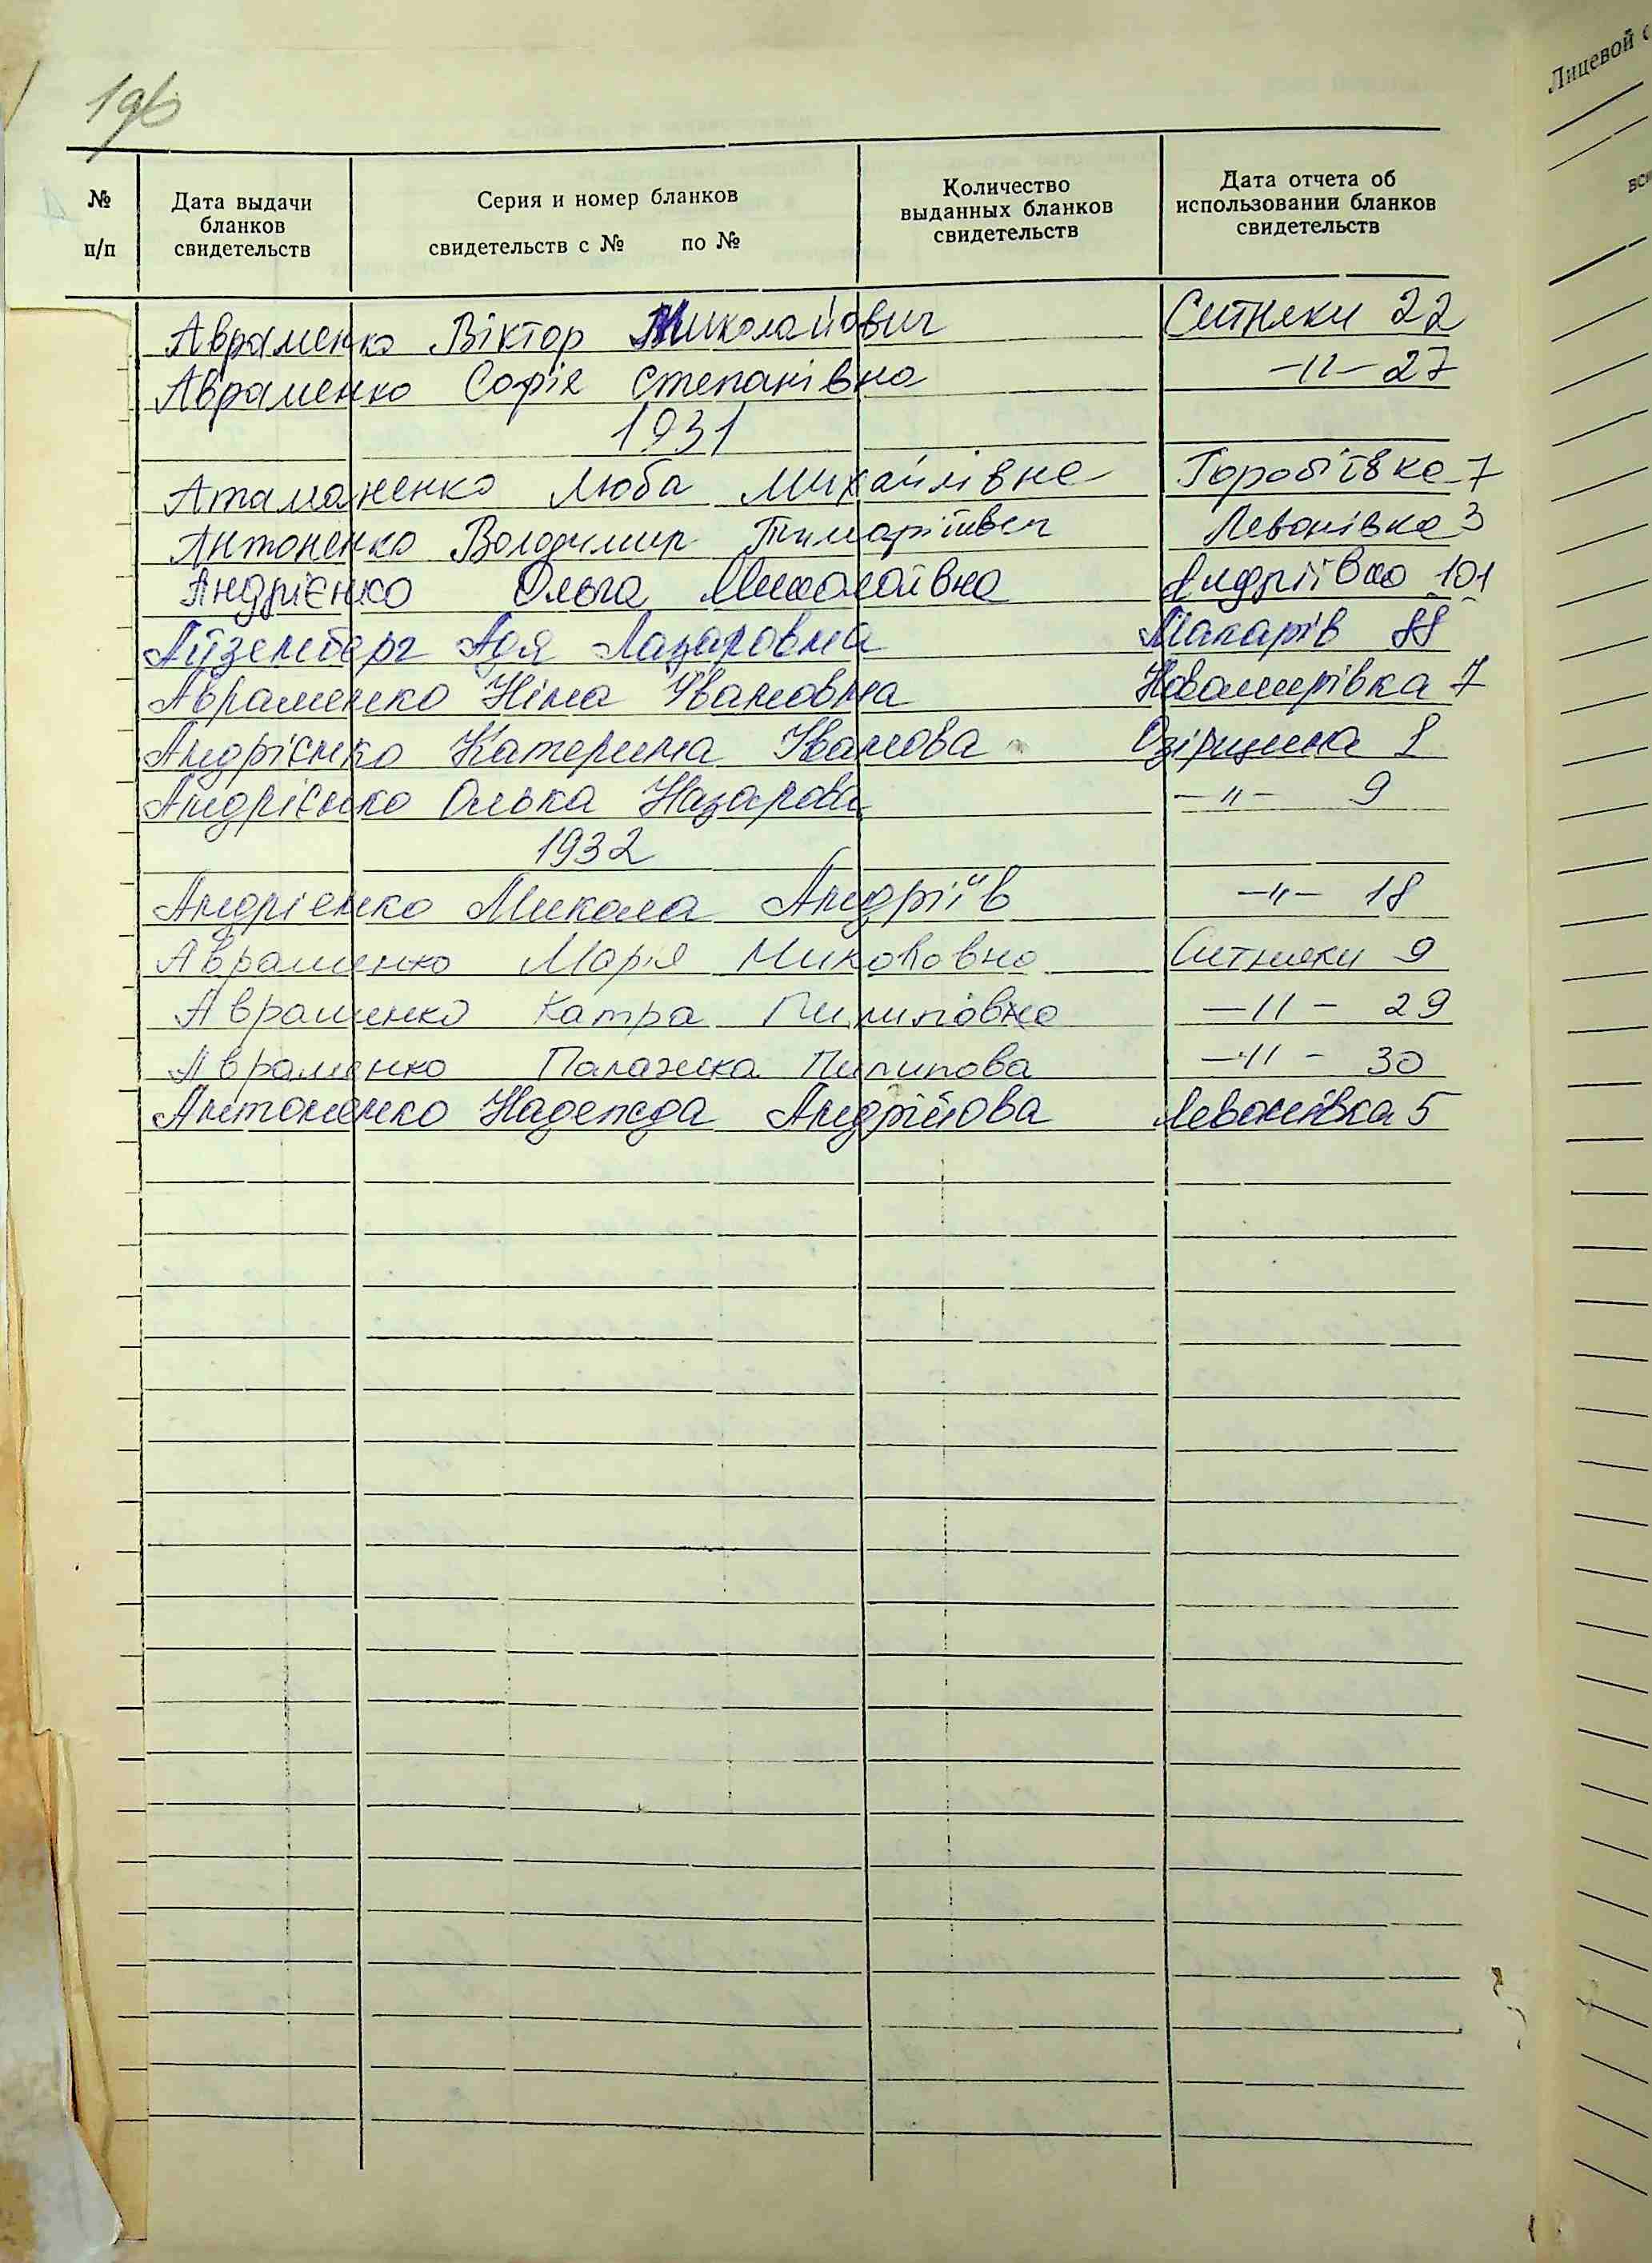 196
№ п/п
Дата выдачи бланков свидетельств
Серия и номер бланков свидетельств с № по №
Количество выданных бланков свидетельств
Дата отчета об использовании бланков свидетельств
Лицевой
Авраменко Віктор Миколайович Ситняки 22
Авраменко Софія Степанівна -11- 27
1931
Атаманенко Люба Михайлівна Горобіївка 7
Антоненко Володимир Левонівка 3
Андрієнко Ольга Миколаївна Андріївка 101
Айзенберг Адя Лазаровна Макарів 88
Авраменко Ніна Івановна Новомирівка 7
Андрієнко Катерина Іванова Озірщина 8
Андрієнко Олька Назарова -"- 9
1932
Андрієнко Микола Андріїв -"- 18
Авраменко Марія Ситняки 9
Авраменко Катра Пилиповна -11- 29
Авраменко Палажка Пилипова -11- 30
Антоненко Надежда Андрійова Левонівка 5